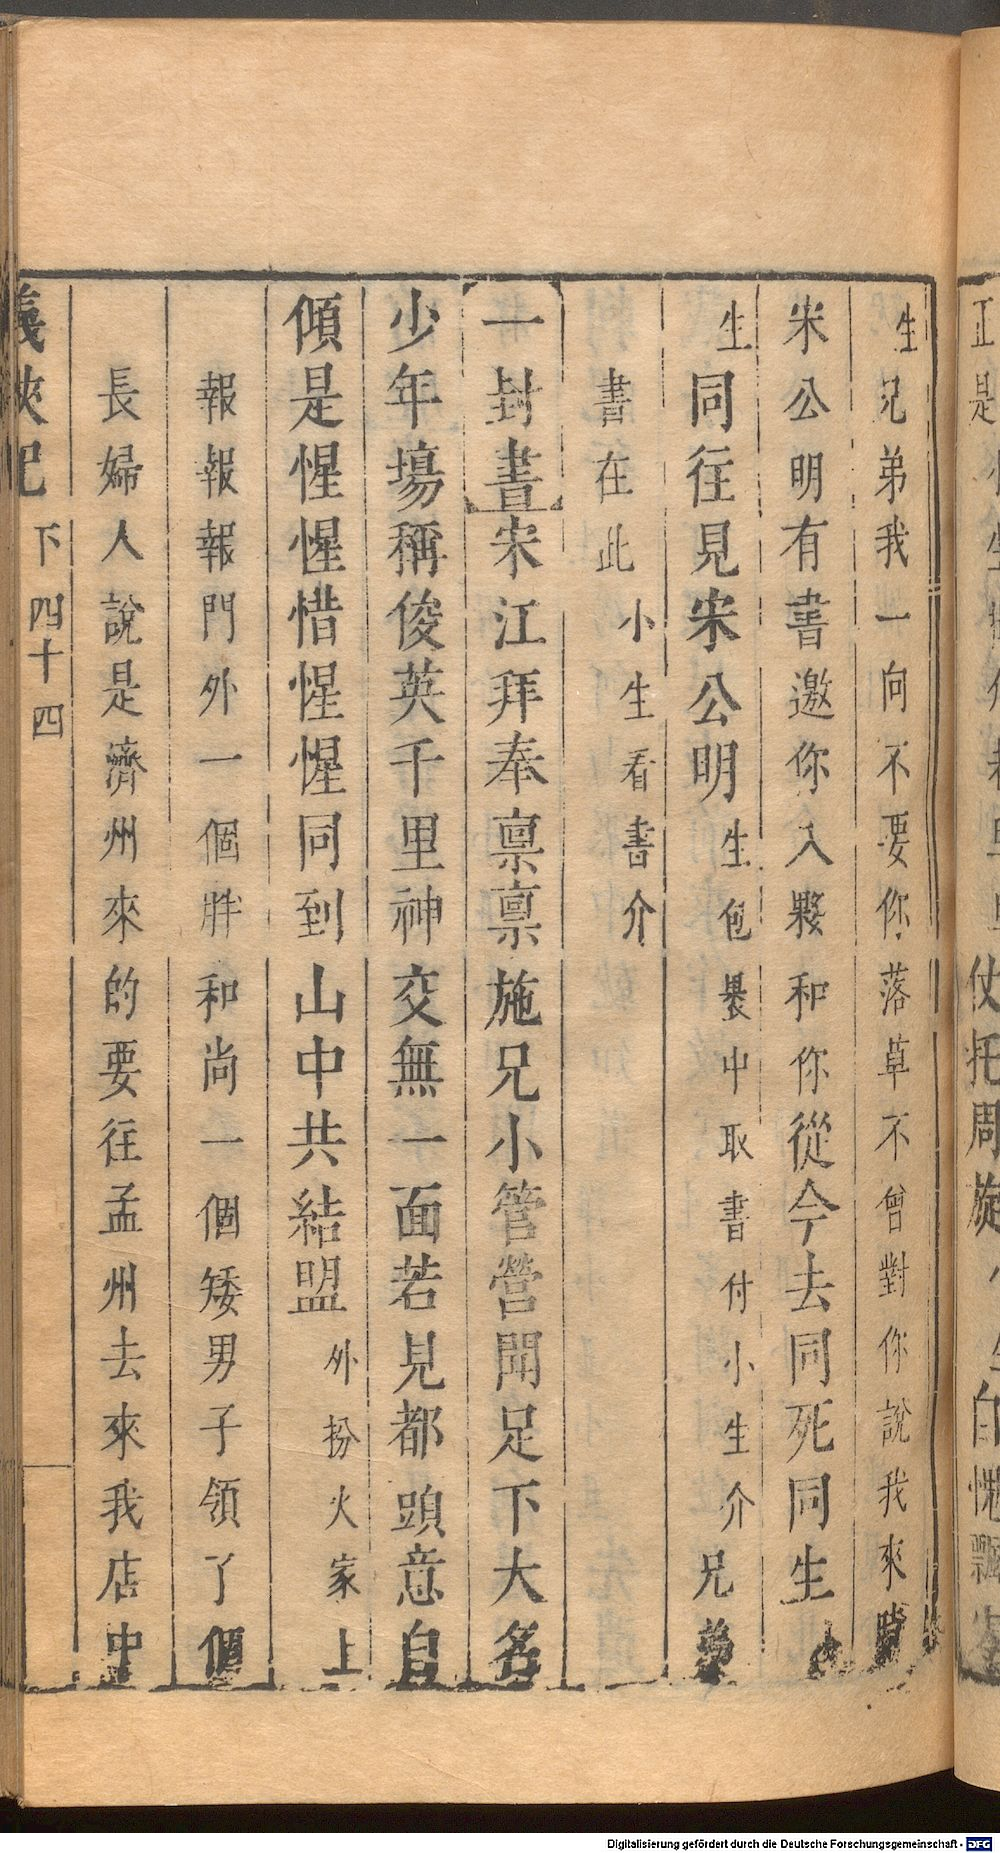 生兄弟我一向不要你落草不曾對你說我來時
宋公明有書邀你入夥和你從今去同死同生
生同往見宋公明生包裹中取書付小生介兄弟
書在此小生看書介
一封書宋江拜奉稟稟施兄小管營聞足下大名
少年場稱俊英千里神交無一面若見都頭意自
傾是惺惺惜惺惺同到山中共結盟外扮火家上
報報報門外一個胖和尚一個矮男子領了個
長婦人說是濟州來的要往孟州去來我店中
義俠記 下 四十四
正是
仗托周旋小生自慨飄
Digitalisierung gefördert durch die Deutsche Forschungsgemeinschaft - DFG